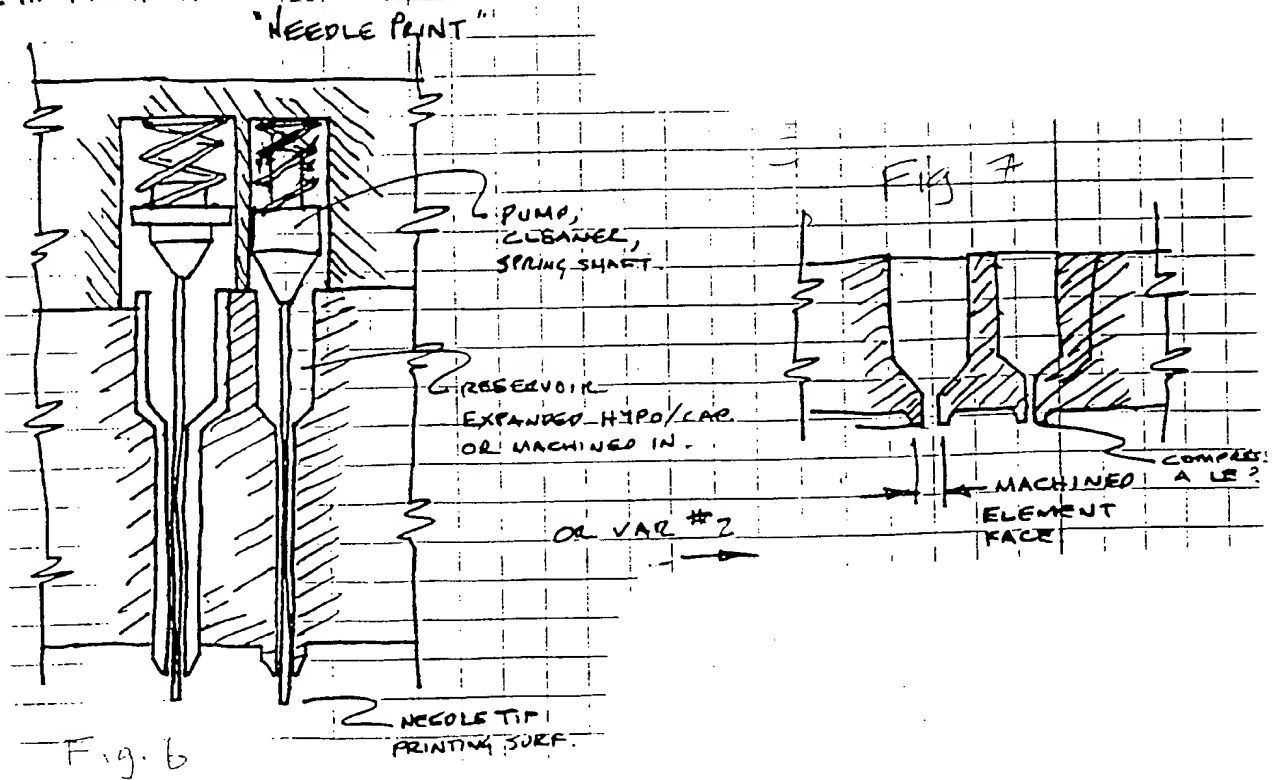 "NEEDLE PRINT"
PUMP,
CLEANER,
SPRING SHAFT
RESERVOIR
EXPANDED HYPO/CAP.
OR MACHINED IN.
OR VAR #2
NEEDLE TIP
PRINTING SURF.
Fig. 6
Fig 7
COMPRESS
A LE?
MACHINED
ELEMENT
FACE